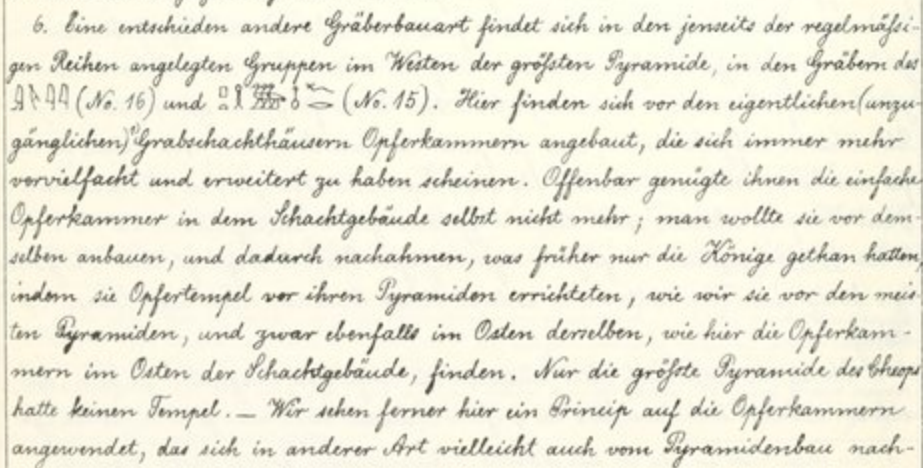 6. Eine entschieden andere Gräberbauart findet sich in den jenseits der regelmäſsi-
gen Reihen angelegten Gruppen im Westen der gröſsten Pyramide, in den Gräbern des
(No. 16) und (No. 15). Hier finden sich vor den eigentlichen (unzu-
gänglichen) Grabschachthäusern Opferkammern angebaut, die sich immer mehr
vervielfacht und erweitert zu haben scheinen. Offenbar genügte ihnen die einfache
Opferkammer in dem Schachtgebäude selbst nicht mehr; man wollte sie vor dem-
selben anbauen, und dadurch nachahmen, was früher nur die Könige gethan hatten,
indem sie Opfertempel vor ihren Pyramiden errichteten, wie wir sie vor den meis
ten Pyramiden, und zwar ebenfalls im Osten derselben, wie hier die Opferkam-
mern im Osten der Schachtgebäude, finden. Nur die gröſste Pyramide des Cheops
hatte keinen Tempel. — Wir sehen ferner hier ein Princip auf die Opferkammern
angewendet, das sich in anderer Art vielleicht auch vom Pyramidenbau nach-